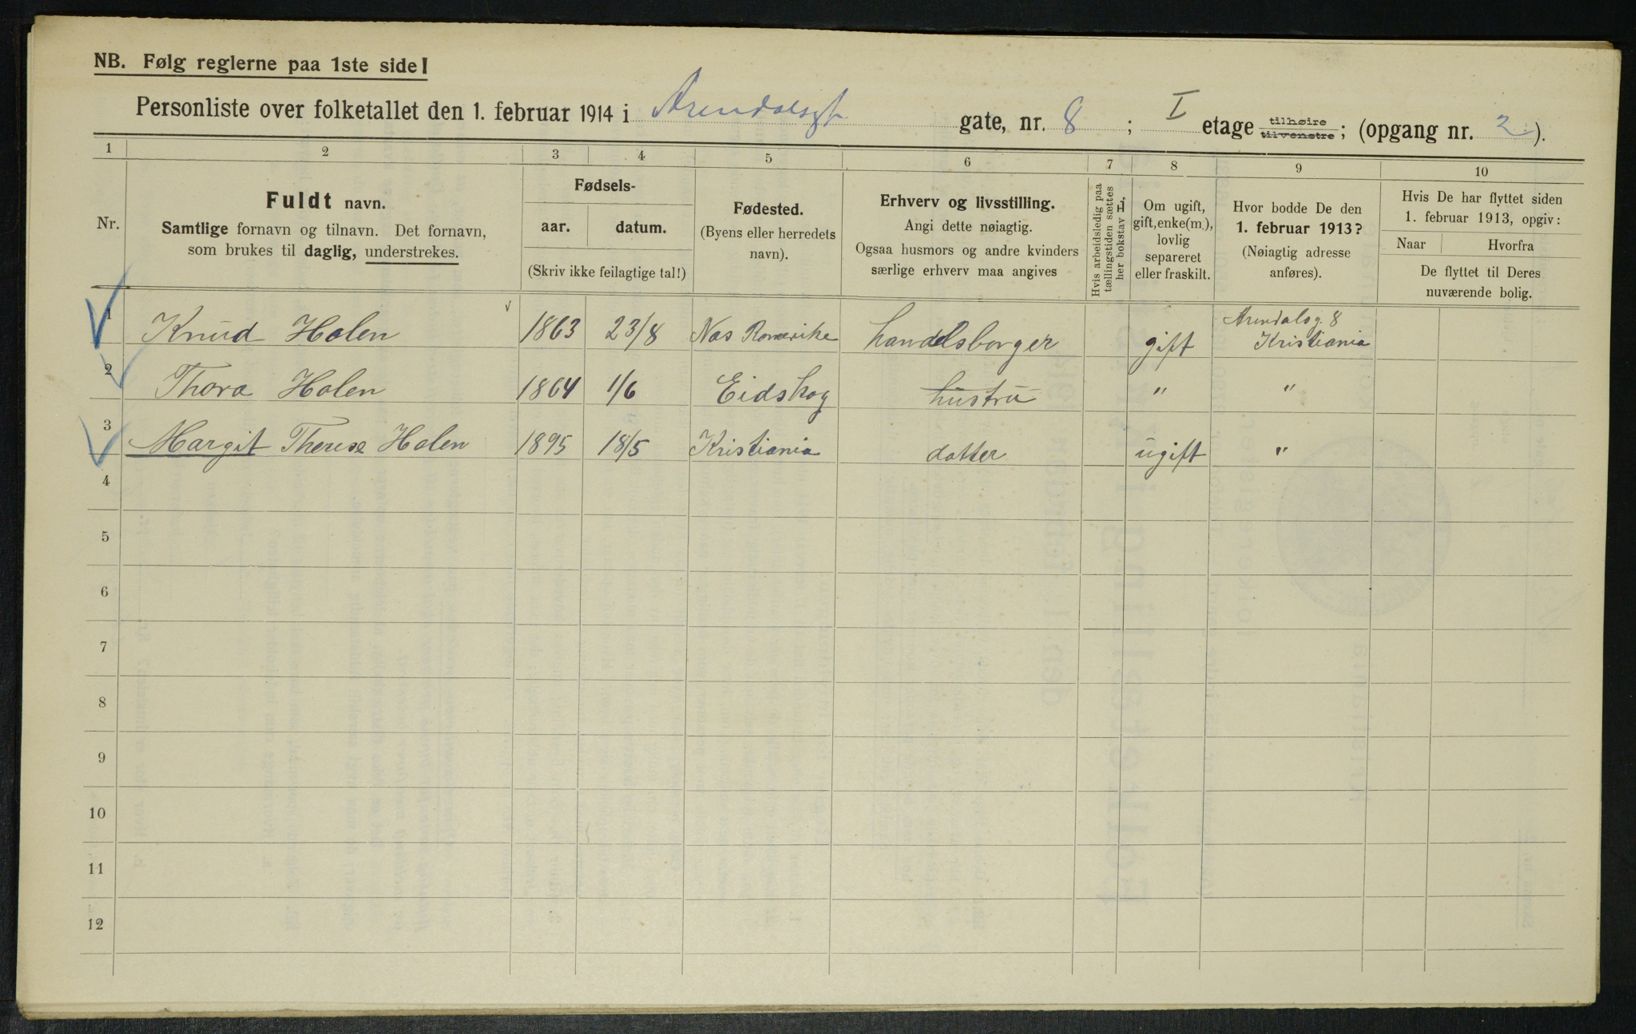 NB. Følg reglerne paa 1ste side!
Personliste over folketallet den 1. februar 1914 i Arendalsgt gate, nr. 8 ; I etage tilhøire tilvenstre; (opgang nr. 2 ).
1 2 3 4 5 6 7 8 9 10
Nr.
Fuldt navn.
Samtlige fornavn og tilnavn. Det fornavn,
som brukes til daglig, understrekes.
Fødsels-
aar. datum.
(Skriv ikke feilagtige tal!)
Fødested.
(Byens eller herredets
navn).
Erhverv og livsstilling.
Angi dette nøiagtig.
Ogsaa husmors og andre kvinders
særlige erhverv maa angives
Hvis arbeidsledig paa
tællingstiden sættes
her bokstav L.
Om ugift,
gift, enke(m.),
lovlig
separeret
eller fraskilt.
Hvor bodde De den
1. februar 1913?
(Nøiagtig adresse
anføres).
Hvis De har flyttet siden
1. februar 1913, opgiv:
Naar Hvorfra
De flyttet til Deres
nuværende bolig.
1 Knud Holen 1863 23/8 Nos Romerike handelsborger gift Arendalsg. 8
Kristiania
2 Thora Holen 1864 1/6 Eidskog hustru " "
3 Margit Therese Holen 1895 18/5 Kristiania datter ugift "
4
5
6
7
8
9
10
11
12